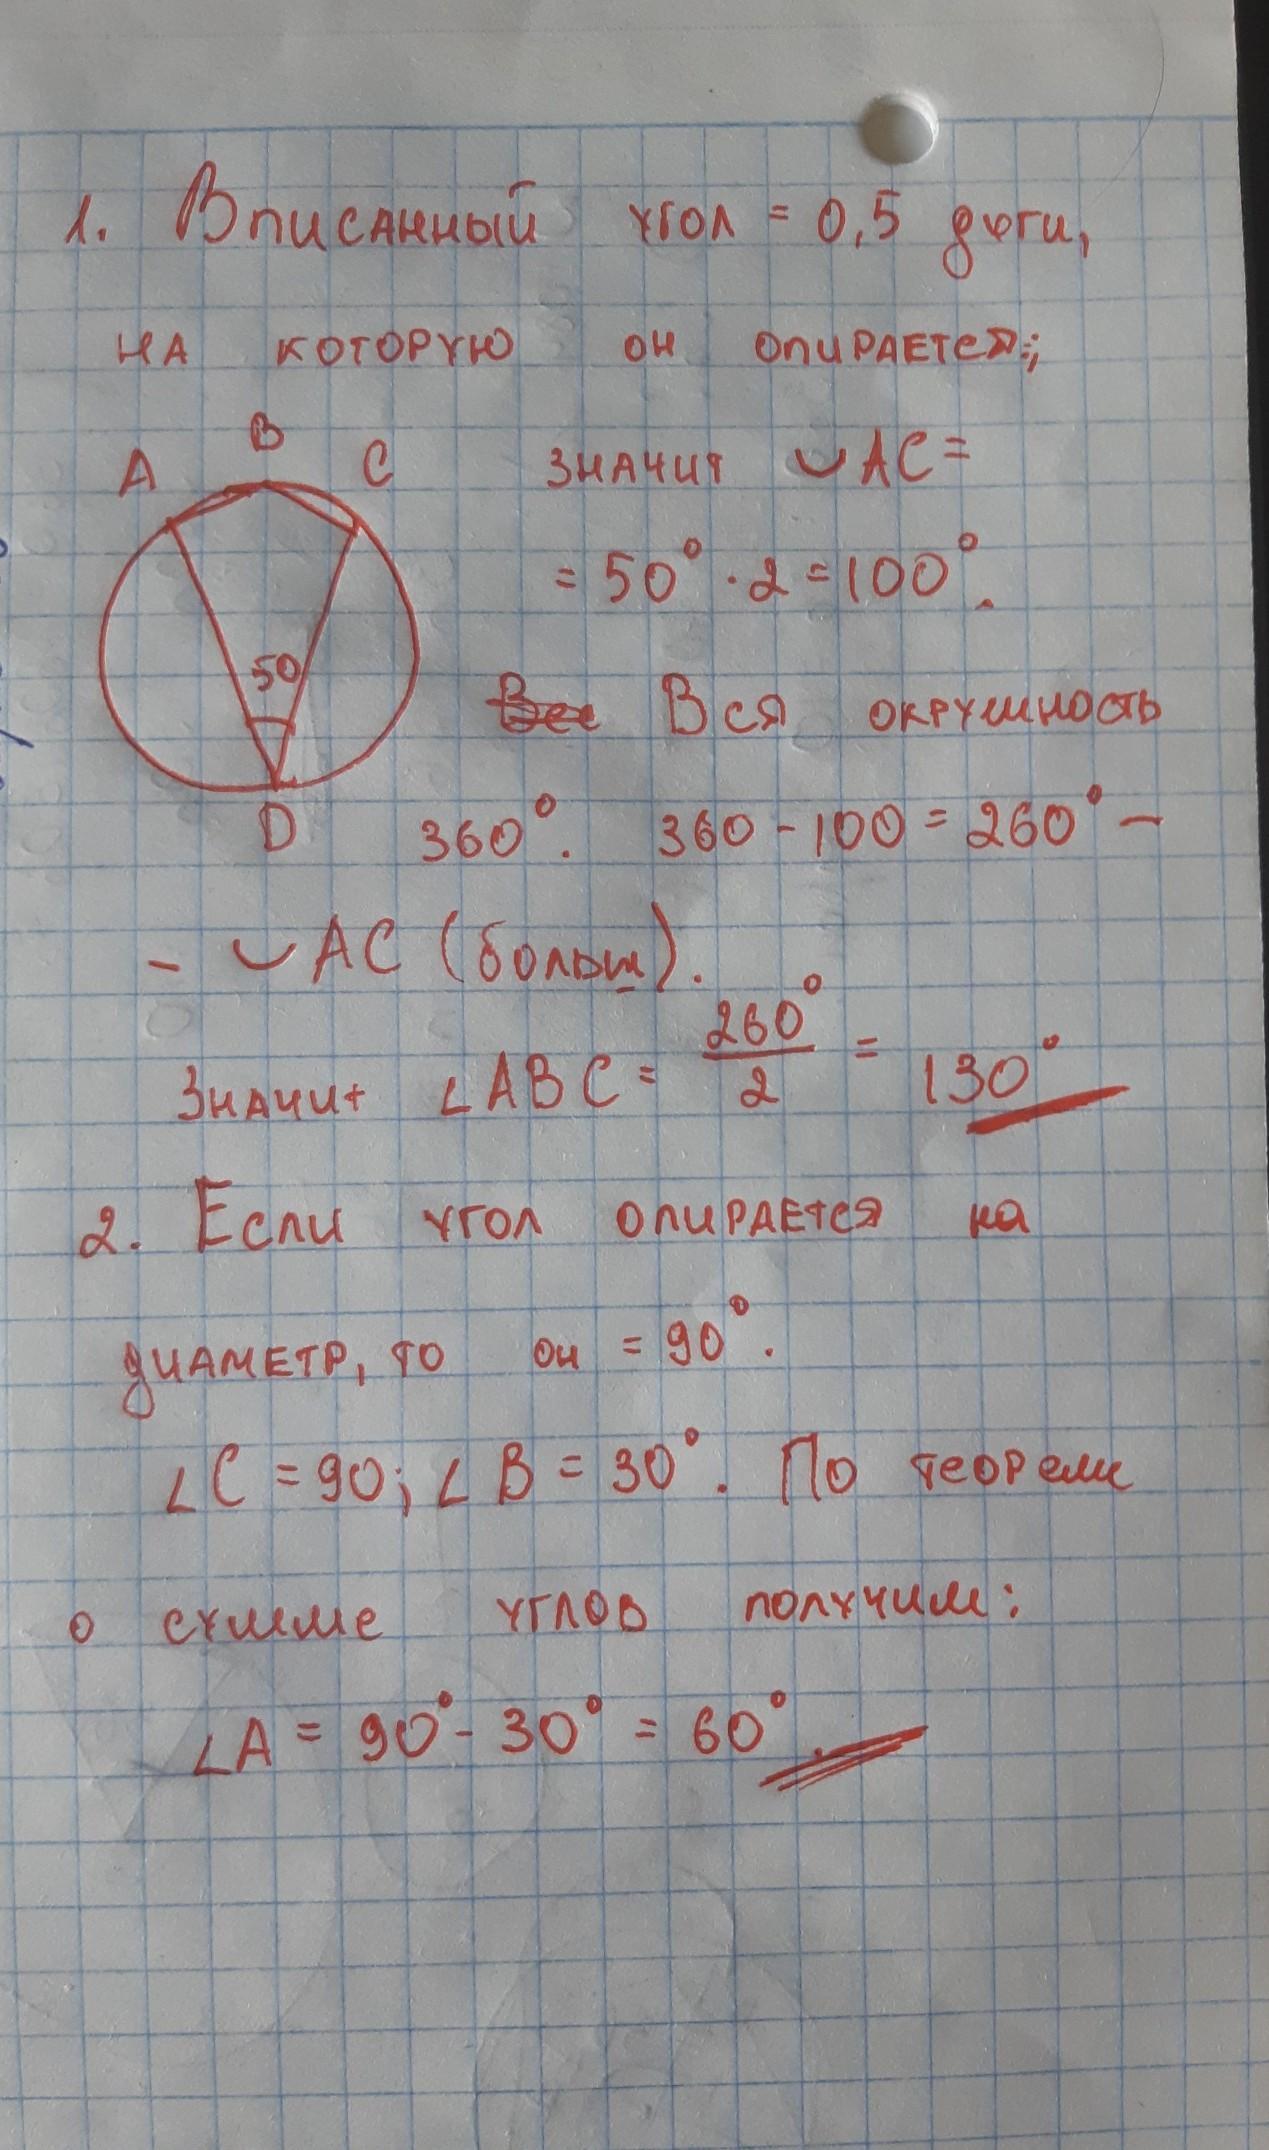 1. Вписанный угол = 0,5 дуги,
на которую он опирается;
A B C
значит ◡AC =
= 50° · 2 = 100°.
50
Вся окружность
D
360°. 360 - 100 = 260° -
- ◡AC (больш).
Значит ∠ABC = 260°/2 = 130°
2. Если угол опирается на
диаметр, то он = 90°.
∠C = 90; ∠B = 30°. По теореме
о сумме углов получим:
∠A = 90° - 30° = 60°.